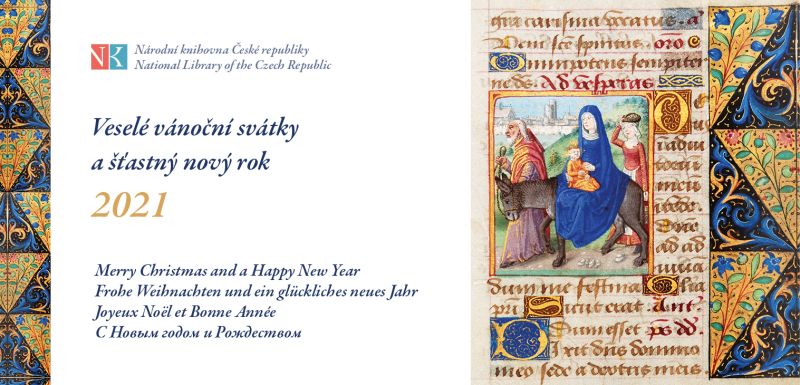 NK
Národní knihovna České republiky
National Library of the Czech Republic
Veselé vánoční svátky
a šťastný nový rok
2021
Merry Christmas and a Happy New Year
Frohe Weihnachten und ein glückliches neues Jahr
Joyeux Noël et Bonne Année
С Новым годом и Рождеством
gra carissima vocatus. a
Veni sce spiritus. oro
Omnipotens sempiter
ne ds. Ad vesperas
dum me festina
Sicut erat. ant.
Dum esset ps dd.
Dixit dns domino
meo sede a dextris meis